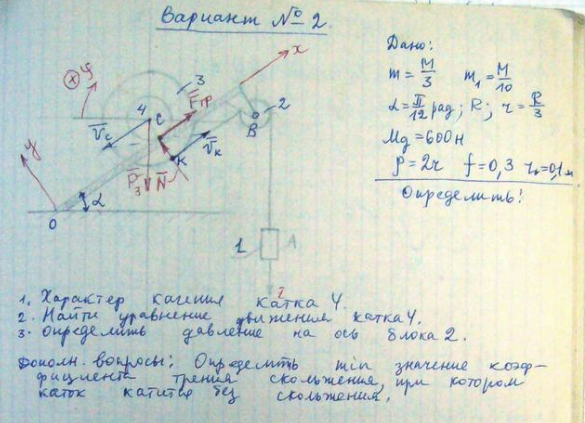 Вариант № 2.
Дано:
m = M/3 m₁ = M/10
α = π/12 рад; R; r = R/3
Mg = 600 н
ρ = 2r f = 0,3 r₀ = 0,1 м
Определить:
x
y
φ
3
4
C
F̅тр
2
B
V̅c
K
V̅k
P̅₃
N̅
α
O
1
A
1. Характер качения катка 4.
2. Найти уравнение движения катка 4.
3. Определить давление на ось блока 2.
Дополн. вопросы: Определить min значение коэф-
фициента трения скольжения, при котором
каток катится без скольжения.